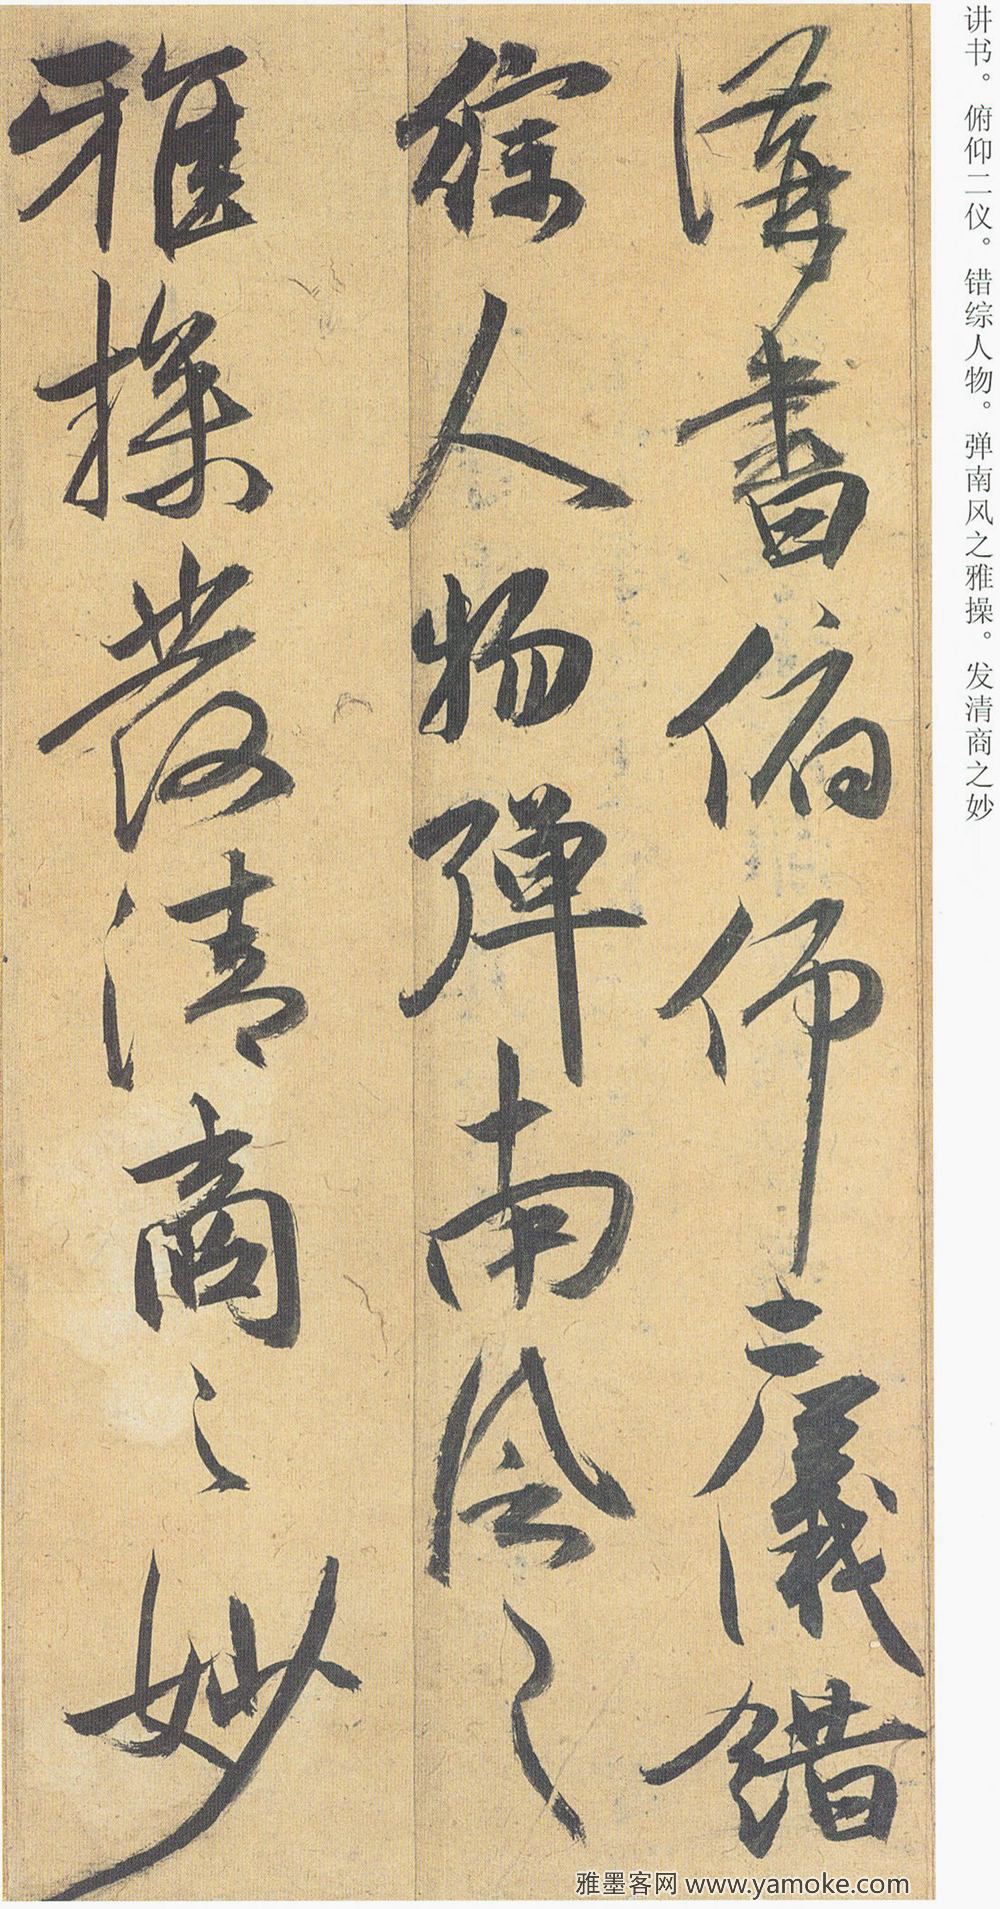 讲书。俯仰二仪。错综人物。弹南风之雅操。发清商之妙
講書俯仰二儀錯
綜人物彈南風之
雅操發清商之妙
雅墨客网 www.yamoke.com